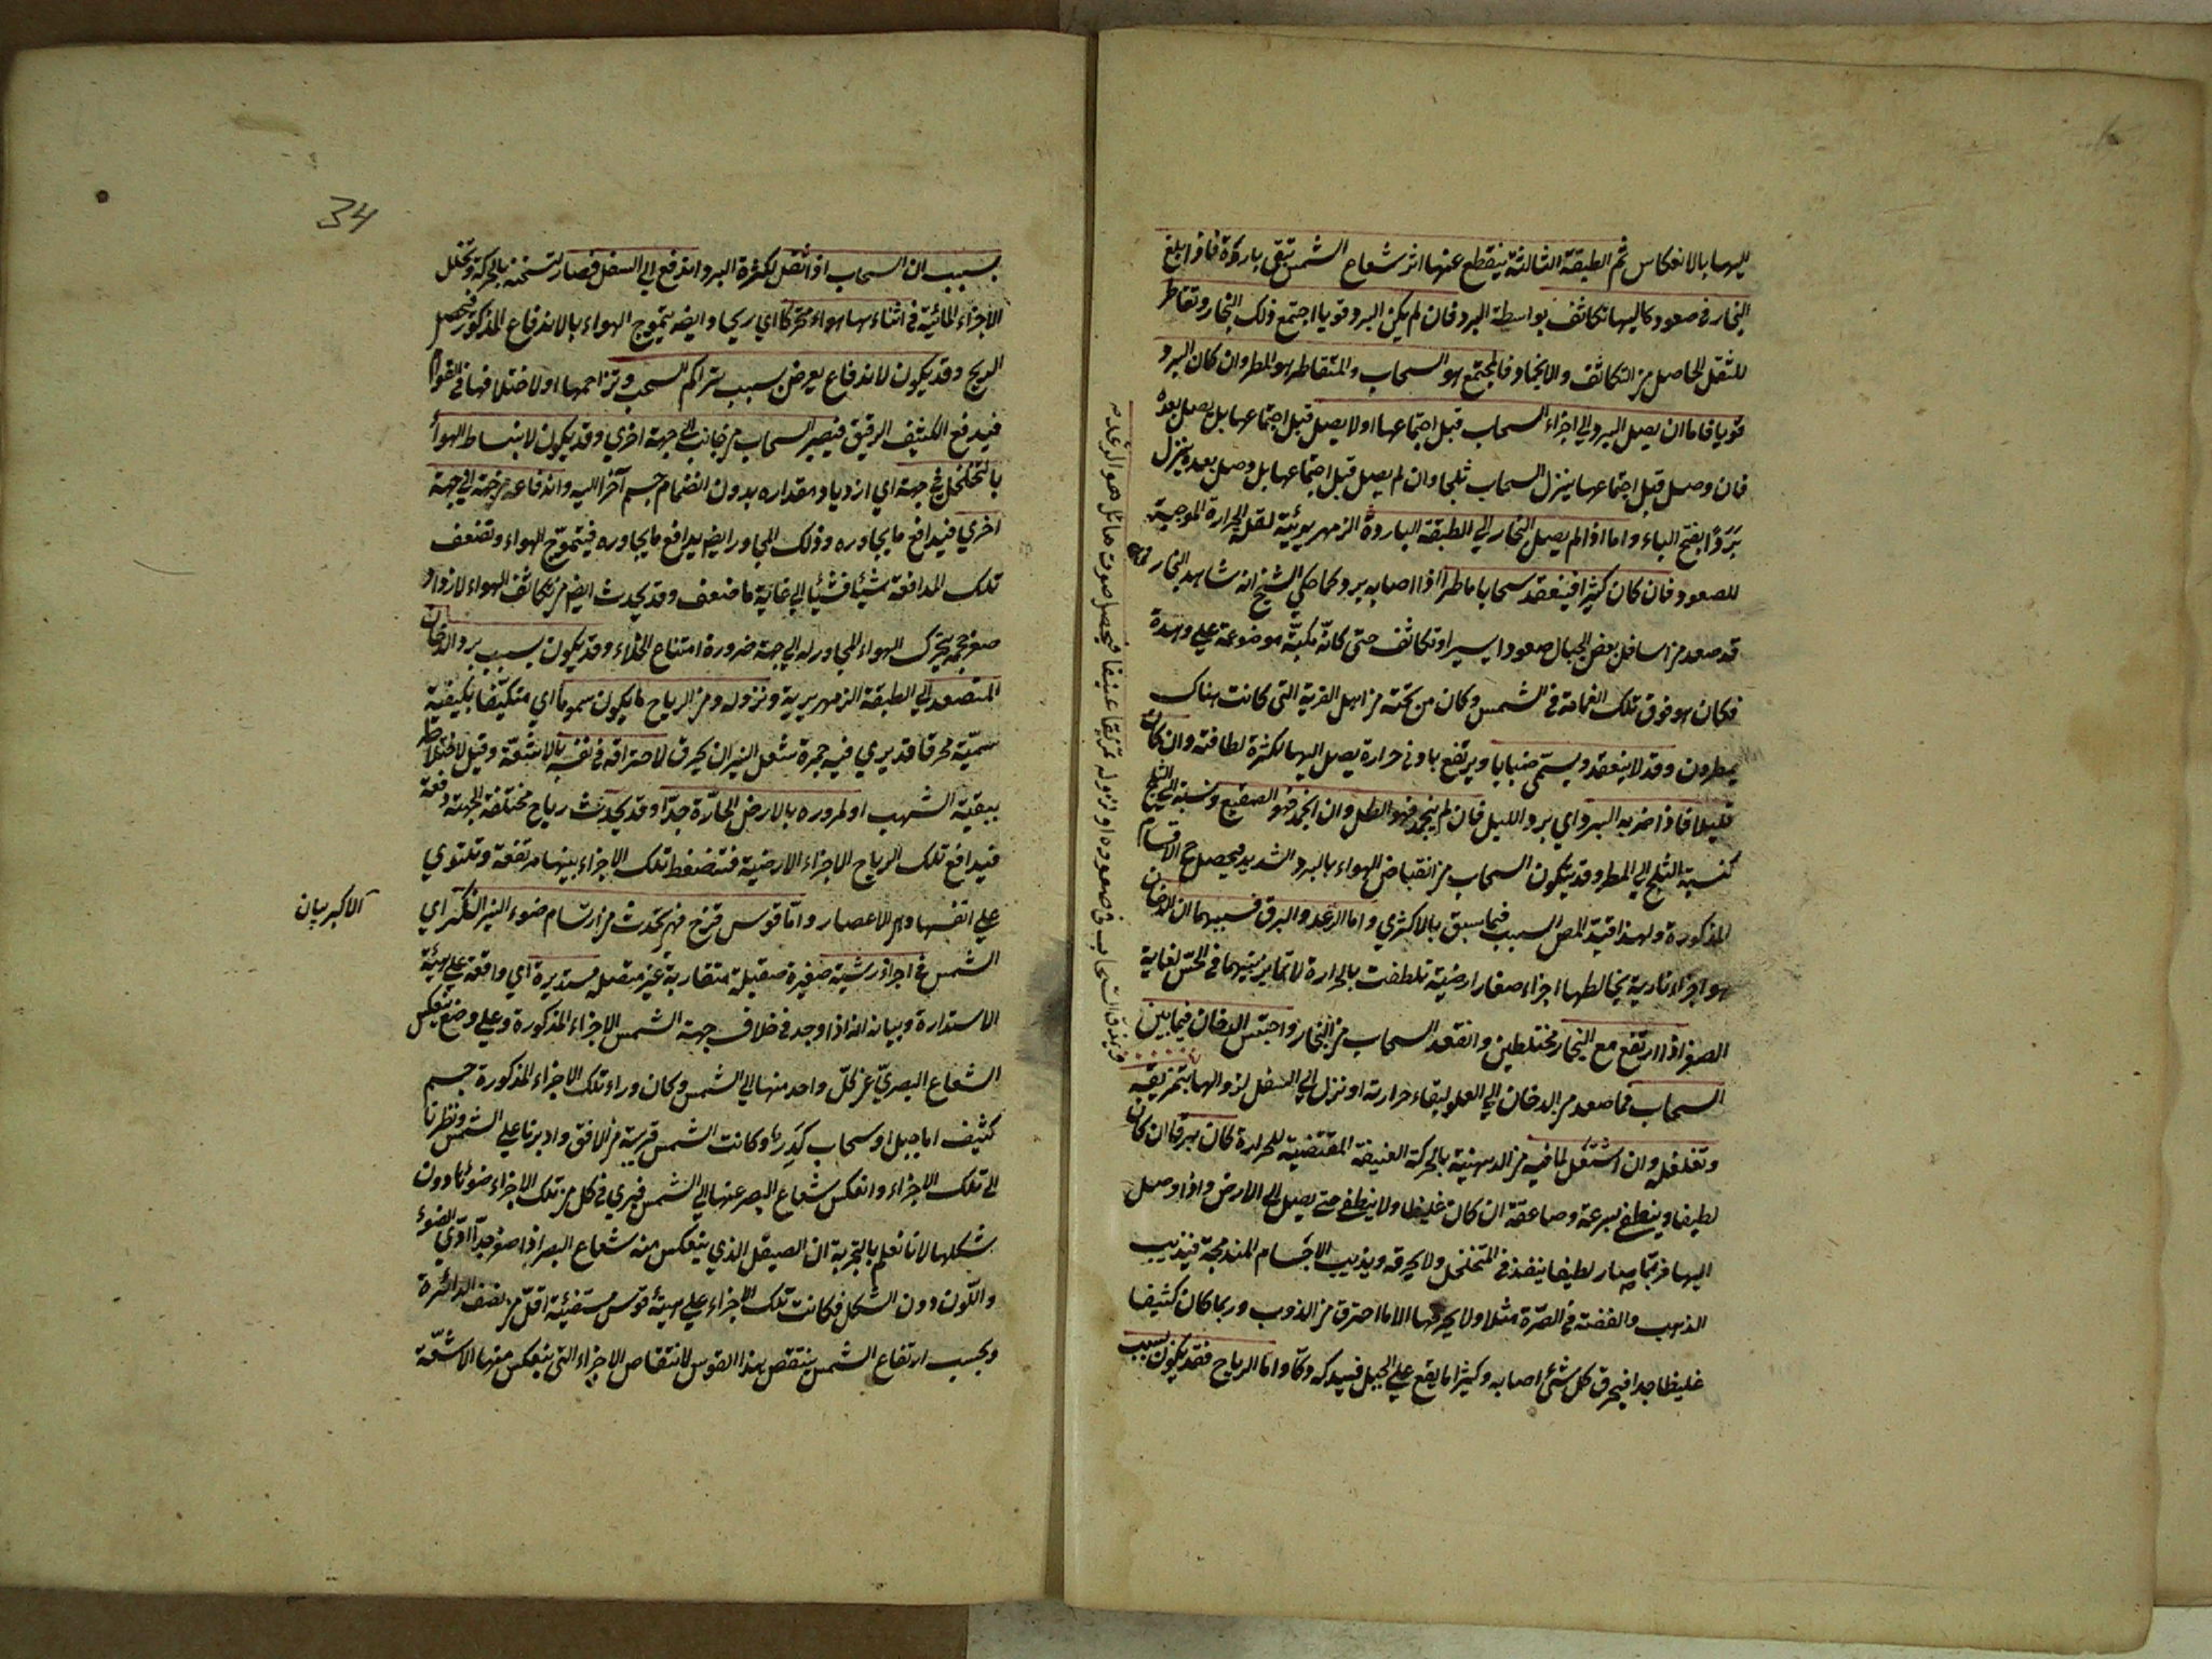 اليها بالانعكاس ثم الطبقة الثالثة ينقطع عنها اثر شعاع الشمس تبقى باردة فاذا بلغ
البخار فى صعوده اليها تكاثف بواسطة البرد فان لم يكن البرد قويا اجتمع ذلك البخار وتقاطر
للثقل الحاصل من التكاثف والانجماد فالمجتمع هو السحاب والمتقاطر هو المطر وان كان البرد
قويا فاما ان يصل البرد الي اجزاء السحاب قبل اجتماعها او لا يصل قبل اجتماعها بل يصل بعده
فان وصل قبل اجتماعها ينزل السحاب ثلجا وان لم يصل قبل اجتماعها بل وصل بعده ينزل
بَرَدًا بفتح الباء واما اذا لم يصل البخار الي الطبقة الباردة الزمهريرية لقلة الحرارة الموجبة
للصعود فان كان كثيرا فينعقد سحابا ماطرا اذا اصابه برد كما حكي الشيخ انه شاهد البخار
قد صعد من اسافل بعض الجبال صعودا يسيرا وتكاثف حتى كانّه مكبّة موضوعة علي وهدة
فكان هو فوق تلك الغمامة فى الشمس وكان من تحته من اهل القرية التى كانت هناك
يمطرون وقد لا ينعقد ويسمّى ضبابا ويرتفع بادنى حرارة يصل اليها لكثرة لطافته وان كان
قليلا فاذا ضربه البرد اي برد الليل فان لم ينجمد فهو الطل وان انجمد فهو الصقيع ونسبته الي الثلج
كنسبة الثلج الي المطر وقد يكون السحاب من انقباض الهواء بالبرد الشديد فيحصل ح الاقسام
المذكورة ولهذا قيد المص السبب فيما سبق بالاكثري واما الرعد والبرق فسببهما ان الدخان
هو اجزاء نارية يخالطها اجزاء صغار ارضية تلطفت بالحرارة لا تمايز بينهما فى الحسّ لغاية
الصغر اذا ارتفع مع البخار مختلطين وانعقد السحاب من البخار واحتبس الدخان فيما بين
السحاب فما صعد من الدخان الي العلو لبقاء حرارته او نزل الي السفل لزوالها يتمزيقه
وتغلغله وان اشتعل لما فيه من الدهنية بالحركة العنيفة المقتضية للحرارة كان برقا ان كان
لطيفا وينطفي بسرعة وصاعقة ان كان غليظا ولا ينطفي حتى يصل الي الارض واذا وصل
اليها فربّما صار لطيفا ينفذ فى المتخلخل ولا يحرقه ويذيب الاجسام المندمجة فيذيب
الذهب والفضة فى الصّرة مثلا ولا يحرقها الا ما احترق من الذوب وربما كان كثيفا
غليظا جدا فيحرق كل شئ اصابه وكثيرا ما يقع علي الجبل فيدكه دكا واما الرياح فقد يكون بسبب
ويمزق السحاب فى صعوده او نزوله تمزيقا عنيفا فيحصل صوت هائل هو الرعد
34
بسبب ان السحاب اذا ثقل لكثرة البرد اندفع الي السفل فصار لتسخنه بالحركة وتحلل
الاجزاء المائية فى اثناءها هواء متحركا اي ريحا وايضا يتموج الهواء بالاندفاع المذكور فيحصل
الريح وقد يكون لاندفاع يعرض بسبب تراكم السحب وتزاحمها او لاختلافها فى القوام
فيدفع الكثيف الرقيق فيصير السحاب من جانب الي جهة اخري وقد يكون لانبساط الهواء
بالتخلخل فى جهة اي ازدياد مقداره بدون انضمام جسم آخر اليه واندفاعه من جهة الي جهة
اخري فيدافع ما يجاوره وذلك المجاور ايضا يدافع ما يجاوره فيتموّج الهواء وتضعف
تلك المدافعة شيئا فشيئا الي غاية ما ضعف وقد يحدث ايضا من تكاثف الهواء لازدياد
صغر حجمه يتحرك الهواء المجاور له الي جهة ضرورة امتناع الخلاء وقد يكون بسبب برد الدخان
المتصعد الي الطبقة الزمهريرية ونزوله ومن الرياح ما يكون سموما اي متكيّفا بكيفية
سميّة محرقا قد يري فيه حمرة شعل النيران يحرق لاحتراقه فى نفسه بالاشعّة وقيل لاختلاطه
ببقية الشهب او لمروره بالارض الحارّة جدّا وقد يحدث رياح مختلفة الجهة دفعة
فيدافع تلك الرياح الاجزاء الارضية فتضغط تلك الاجزاء بينها مرتفعة وتلتوي
علي انفسها وهو الاعصار وامّا قوس قزح فهي تحدث من ارتسام ضوء النير الاكبر اي
الاكبر بيان
الشمس فى اجزاء رشية صغيرة صقيلة متقاربة غير متصلة مستديرة اي واقعة علي هيئة
الاستدارة وبيانه انه اذا وجد فى خلاف جهة الشمس الاجزاء المذكورة وعلي وضع ينعكس
الشعاع البصريّ عن كلّ واحد منها الي الشمس وكان وراء تلك الاجزاء المذكورة جسم
كثيف اما جبل او سحاب كَدِر وكانت الشمس قريبة من الافق وادبرنا علي الشمس ونظرنا
الى تلك الاجزاء وانعكس شعاع البصر عنها الي الشمس فيري فى كل من تلك الاجزاء ضوئها دون
شكلها لانا نعلم بالتجربة ان الصيقل الذي ينعكس منه شعاع البصر اذا صغر جدّا ادّي الضوء
واللّون دون الشكل فكانت تلك الاجزاء علي هيئة قوس مستضيئة اقلّ من نصف الدائرة
وبحسب ارتفاع الشمس ينتقص هذا القوس لانتقاص الاجزاء التى ينعكس منها الاشعّة